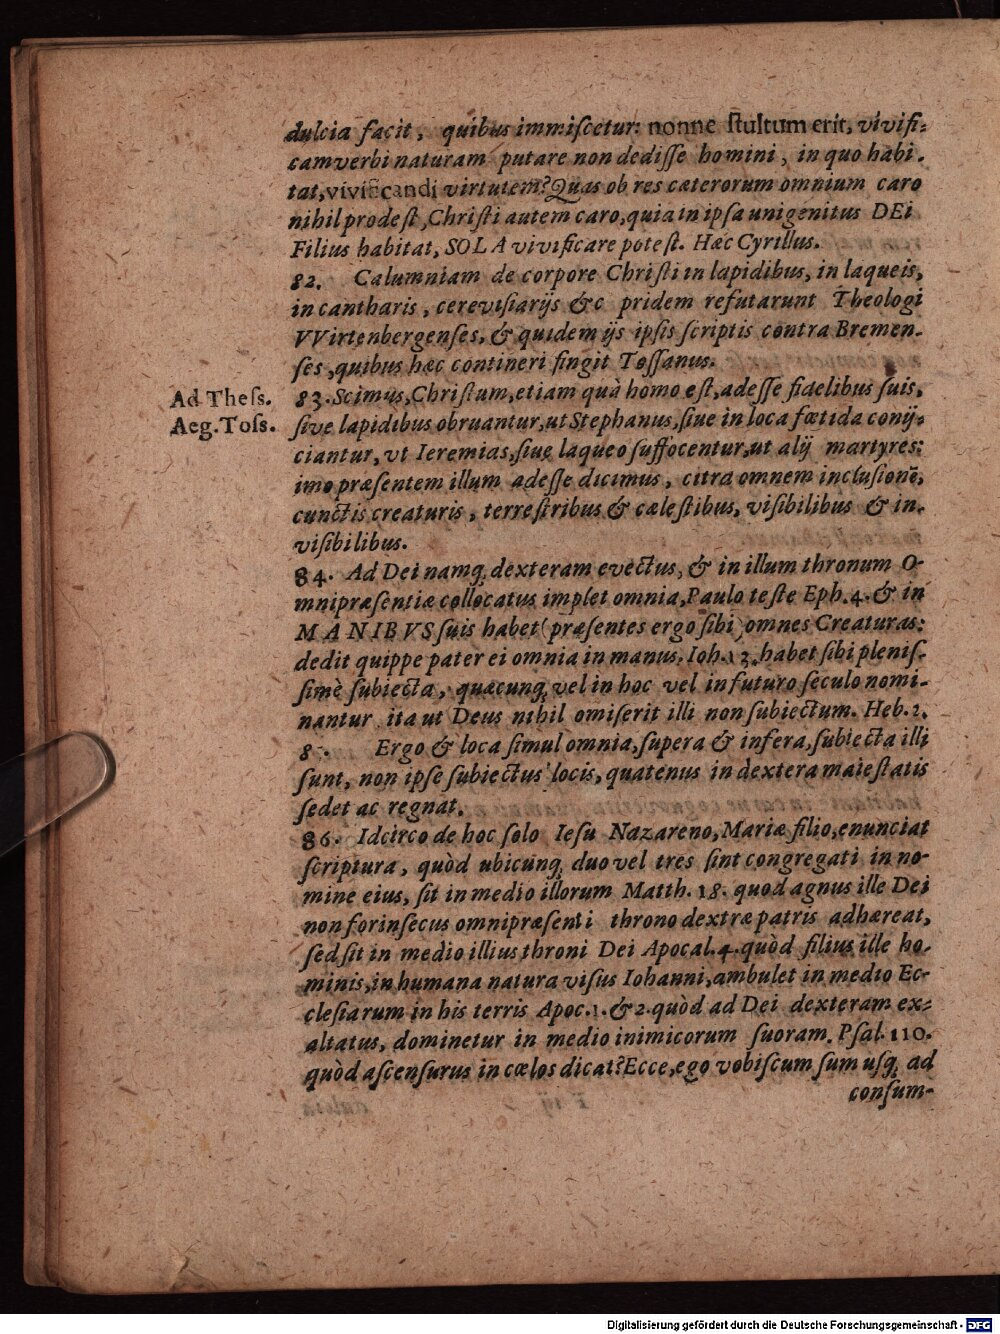 dulcia facit, quibus immiſcetur: nonne ſtultum erit, vivifi-
cam verbi naturam putare non dediſſe homini, in quo habi-
tat, vivificandi virtutem? Quas ob res cæterorum omnium caro
nihil prodeſt, Chriſti autem caro, quia in ipſa unigenitus DEi
Filius habitat, SOLA vivificare poteſt. Hæc Cyrillus.
82. Calumniam de corpore Chriſti in lapidibus, in laqueis,
in cantharis, cereviſiarijs &c pridem refutarunt Theologi
VVirtenbergenſes, & quidem ijs ipſis ſcriptis contra Bremen-
ſes, quibus hæc contineri fingit Toſſanus.
Ad Theſs.
Aeg. Toſs.
83. Scimus, Chriſtum, etiam quà homo eſt, adeſſe fidelibus ſuis,
ſive lapidibus obruantur, ut Stephanus, ſiue in loca fœtida conij-
ciantur, vt Ieremias, ſiue laqueo ſuffocentur, ut alij martyres:
imo præſentem illum adeſſe dicimus, citra omnem incluſionẽ,
cunctis creaturis, terreſtribus & cæleſtibus, viſibilibus & in-
viſibilibus.
84. Ad Dei namq; dexteram evectus, & in illum thronum O-
mnipræſentiæ collocatus implet omnia, Paulo teſte Eph. 4. & in
MANIBVS ſuis habet (præſentes ergo ſibi) omnes Creaturas:
dedit quippe pater ei omnia in manus. Ioh. 13. habet ſibi pleniſ-
ſimè ſubiecta, quæcunq; vel in hoc vel in futuro ſeculo nomi-
nantur ita ut Deus nihil omiſerit illi non ſubiectum. Heb. 2.
8 . Ergo & loca ſimul omnia, ſupera & infera, ſubiecta illi
ſunt, non ipſe ſubiectus locis, quatenus in dextera maieſtatis
ſedet ac regnat.
86. Idcirco de hoc ſolo Ieſu Nazareno, Mariæ filio, enunciat
ſcriptura, quòd ubicunq; duo vel tres ſint congregati in no-
mine eius, ſit in medio illorum Matth. 18. quod agnus ille Dei
non forinſecus omnipræſenti throno dextræ patris adhæreat,
ſed ſit in medio illius throni Dei Apocal. 4. quòd filius ille ho-
minis, in humana natura viſus Iohanni, ambulet in medio Ec-
cleſiarum in his terris Apoc. 1. & 2. quòd ad Dei dexteram ex-
altatus, dominetur in medio inimicorum ſuoram. Pſal. 110.
quòd aſcenſurus in cœlos dicat? Ecce, ego vobiſcum ſum uſq; ad
conſum-
Digitalisierung gefördert durch die Deutsche Forschungsgemeinschaft - DFG